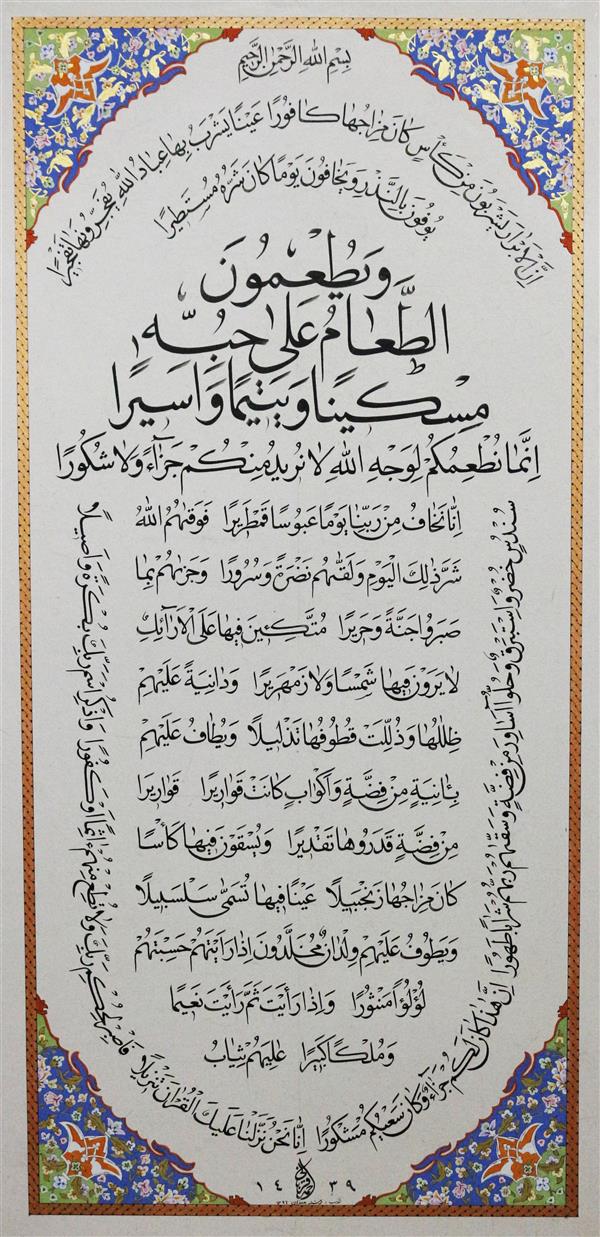 بِسْمِ اللهِ الرَّحْمٰنِ الرَّحِيمِ
اِنَّ الْاَبْرَارَ يَشْرَبُونَ مِنْ كَأْسٍ كَانَ مِزَاجُهَا كَافُورًا عَيْنًا يَشْرَبُ بِهَا عِبَادُ اللهِ يُفَجِّرُونَهَا تَفْجِيرًا
يُوفُونَ بِالنَّذْرِ وَيَخَافُونَ يَوْمًا كَانَ شَرُّهُ مُسْتَطِيرًا
وَيُطْعِمُونَ
الطَّعَامَ عَلٰى حُبِّهِ
مِسْكِينًا وَيَتِيمًا وَاَسِيرًا
اِنَّمَا نُطْعِمُكُمْ لِوَجْهِ اللهِ لَا نُرِيدُ مِنْكُمْ جَزَآءً وَلَا شُكُورًا
اِنَّا نَخَافُ مِنْ رَبِّنَا يَوْمًا عَبُوسًا قَمْطَرِيرًا فَوَقٰهُمُ اللهُ
شَرَّ ذٰلِكَ الْيَوْمِ وَلَقّٰهُمْ نَضْرَةً وَسُرُورًا وَجَزٰهُمْ بِمَا
صَبَرُوا جَنَّةً وَحَرِيرًا مُتَّكِئِينَ فِيهَا عَلَى الْاَرَآئِكِ
لَا يَرَوْنَ فِيهَا شَمْسًا وَلَا زَمْهَرِيرًا وَدَانِيَةً عَلَيْهِمْ
ظِلٰلُهَا وَذُلِّلَتْ قُطُوفُهَا تَذْلِيلًا وَيُطَافُ عَلَيْهِمْ
بِـَٔانِيَةٍ مِنْ فِضَّةٍ وَاَكْوَابٍ كَانَتْ قَوَارِيرَا قَوَارِيرَا
مِنْ فِضَّةٍ قَدَّرُوهَا تَقْدِيرًا وَيُسْقَوْنَ فِيهَا كَأْسًا
كَانَ مِزَاجُهَا زَنْجَبِيلًا عَيْنًا فِيهَا تُسَمّٰى سَلْسَبِيلًا
وَيَطُوفُ عَلَيْهِمْ وِلْدَانٌ مُخَلَّدُونَ اِذَا رَاَيْتَهُمْ حَسِبْتَهُمْ
لُؤْلُؤًا مَنْثُورًا وَاِذَا رَاَيْتَ ثَمَّ رَاَيْتَ نَعِيمًا
وَمُلْكًا كَبِيرًا عٰلِيَهُمْ ثِيَابُ
سُنْدُسٍ خُضْرٌ وَاِسْتَبْرَقٌ وَحُلُّوا اَسَاوِرَ مِنْ فِضَّةٍ وَسَقٰهُمْ رَبُّهُمْ شَرَابًا طَهُورًا اِنَّ هٰذَا كَانَ لَكُمْ جَزَآءً وَكَانَ سَعْيُكُمْ مَشْكُورًا اِنَّا نَحْنُ نَزَّلْنَا عَلَيْكَ الْقُرْاٰنَ تَنْزِيلًا فَاصْبِرْ لِحُكْمِ رَبِّكَ وَلَا تُطِعْ مِنْهُمْ اٰثِمًا اَوْ كَفُورًا وَاذْكُرِ اسْمَ رَبِّكَ بُكْرَةً وَاَصِيلًا
١٤٣٩